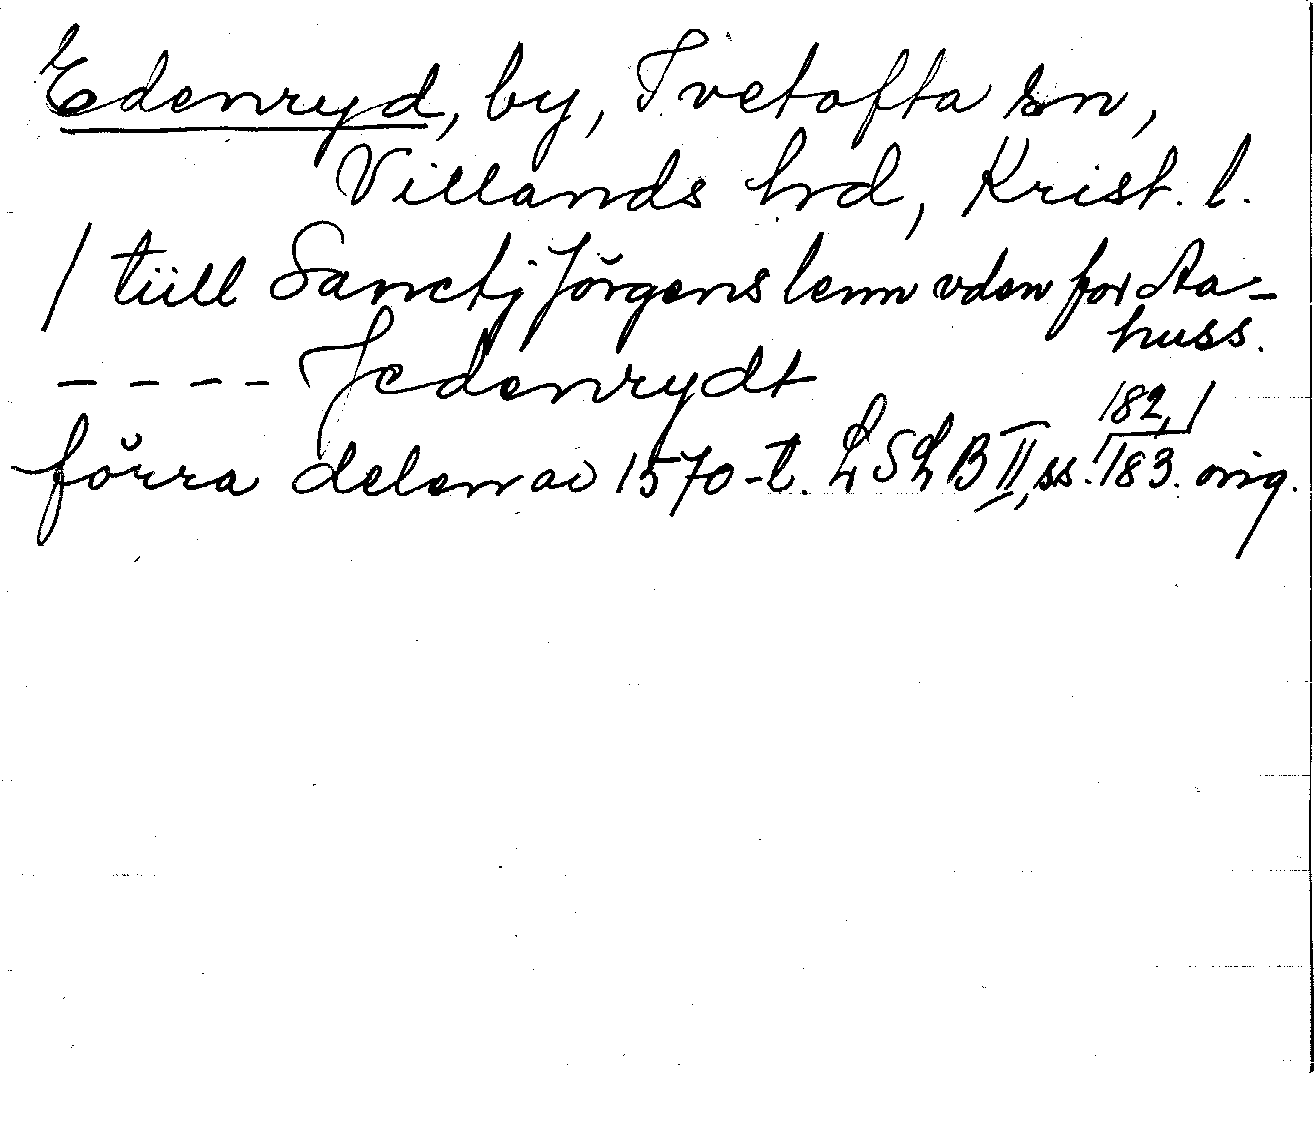 Edenryd, by, Tvetofta sn,
Villands hrd, Krist. l.
/ tüll Sanctj Jörgens lenn vden for Aa-
huss.
- - - - Jedenrydt
182, /
förra delen av 1570-t. LSLB II, ss. 183. orig.